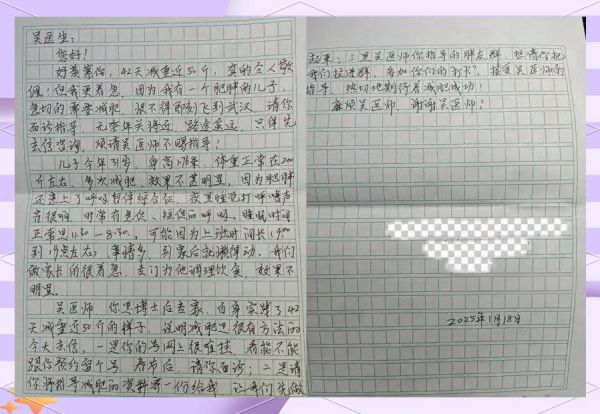 吴医生：
您好！
好羡慕你，42天减重近50斤，真的令人敬
佩！但我更着急，因为我有一个肥胖的儿子，
急切的需要减肥，恨不得即刻飞到武汉，请你
面诊指导，无奈年关将近，路途遥远，只得先
去信咨询，烦请吴医师不赐指导！
儿子今年31岁，身高1.78米，体重正常在200
斤左右，多次减肥，效果不甚明显，因为肥胖
还患上了呼吸暂停综合征，夜里睡觉打呼噜声
音很响，时常有
短促的呼吸。睡眠时间
正常是11:30—8:30。可能因为上班时间长（9:00
到19点左右），事情多，到家后就懒得动。我们
做家长的很着急，专门为他调理饮食，效果不
明显。
吴医师，你是博士后专家，自身实践了42
天减重近50斤的样子，说明减肥是很有方法的
今天去信，一是你的号网上很难挂，看能不能
跟你预约留个号，春节后，请你面诊；二是请
你将指导减肥的资料寄一份给我，让我们先做
起来；三是吴医师你指导的胖友群，想请你把
我们拉进群，参加你们的打卡，接受吴医师的
指导，热切地期待着减肥成功！
麻烦吴医师，谢谢吴医师！
2025年1月18日